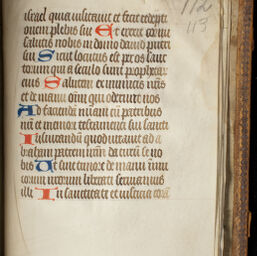 israel quia visitavit et fecit redempti
onem plebis sue Et erexit cornu
salutis nobis in domo david pueri
sui Sicut locutus est per os sanc
torum qui a seculo sunt prophetar
eius Salutem ex inimicis nris
et de manu oim qui oderunt nos
Ad faciendā miam cū patribus
nris et memorari testamenti sui sancti
Iusiurandū quod iuravit ad a
braham patrem nrm daturū se no
bis Ut sine timore de manu inimi
corum nrorum liberati serviamus
illi In sanctitate et iusticia coram
112
113